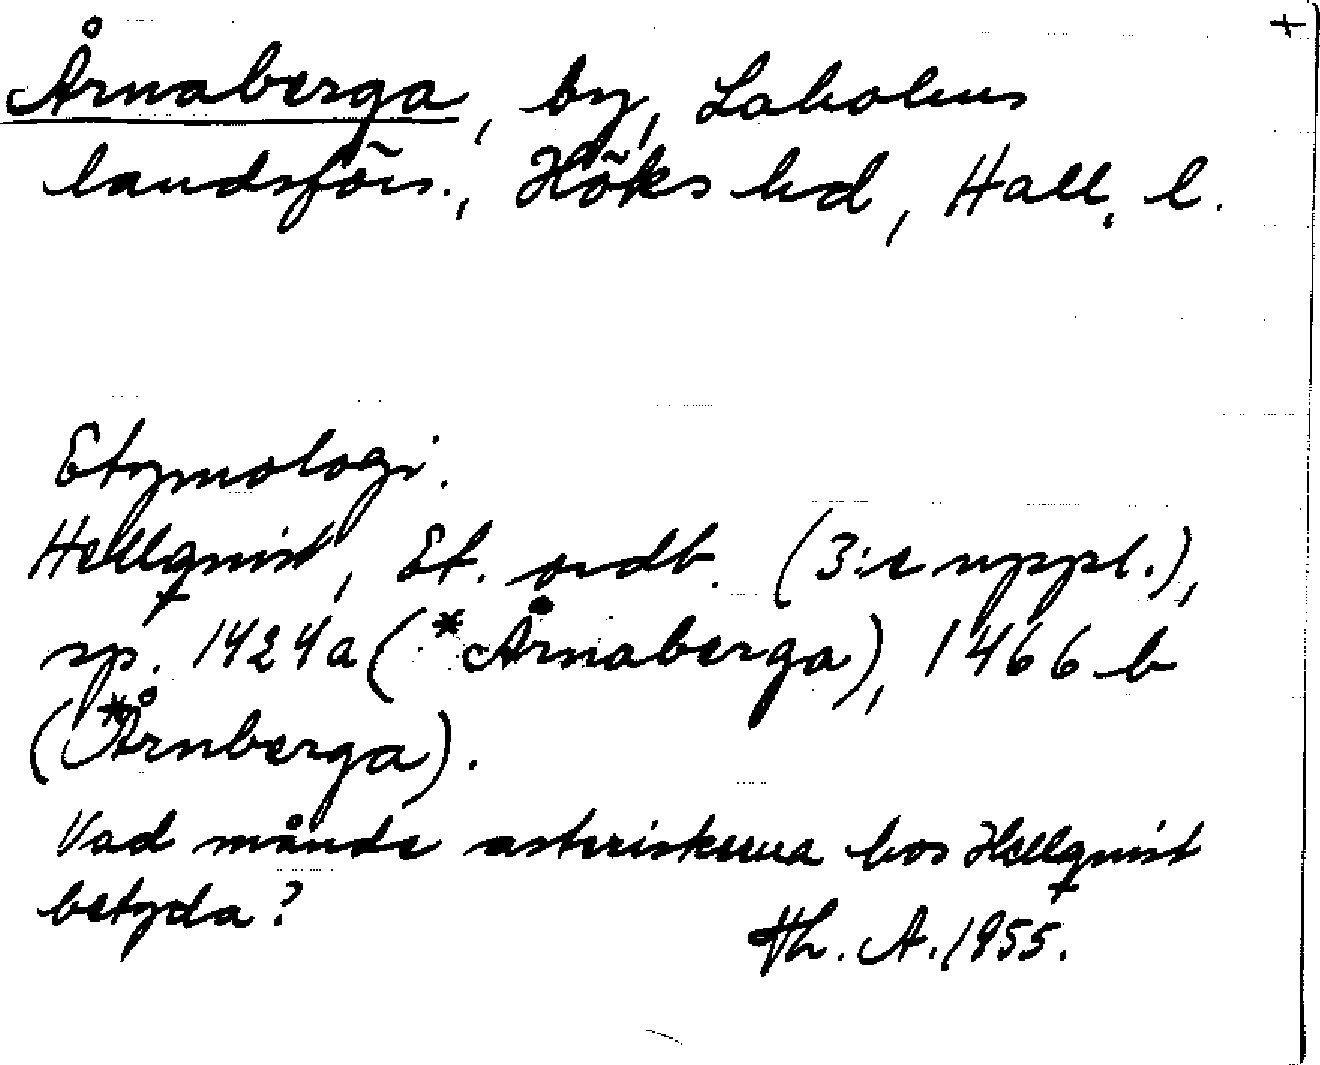 +
Årnaberga, by, Laholms
landsförs., Höks hd, Hall. l.
Etymologi.
Hellquist, Et. ordb. (3:e uppl.),
sp. 1424a (*Årnaberga), 1466 b
(*Årnberga).
Vad månde asteriskerna hos Hellquist
betyda?
Th. A. 1955.